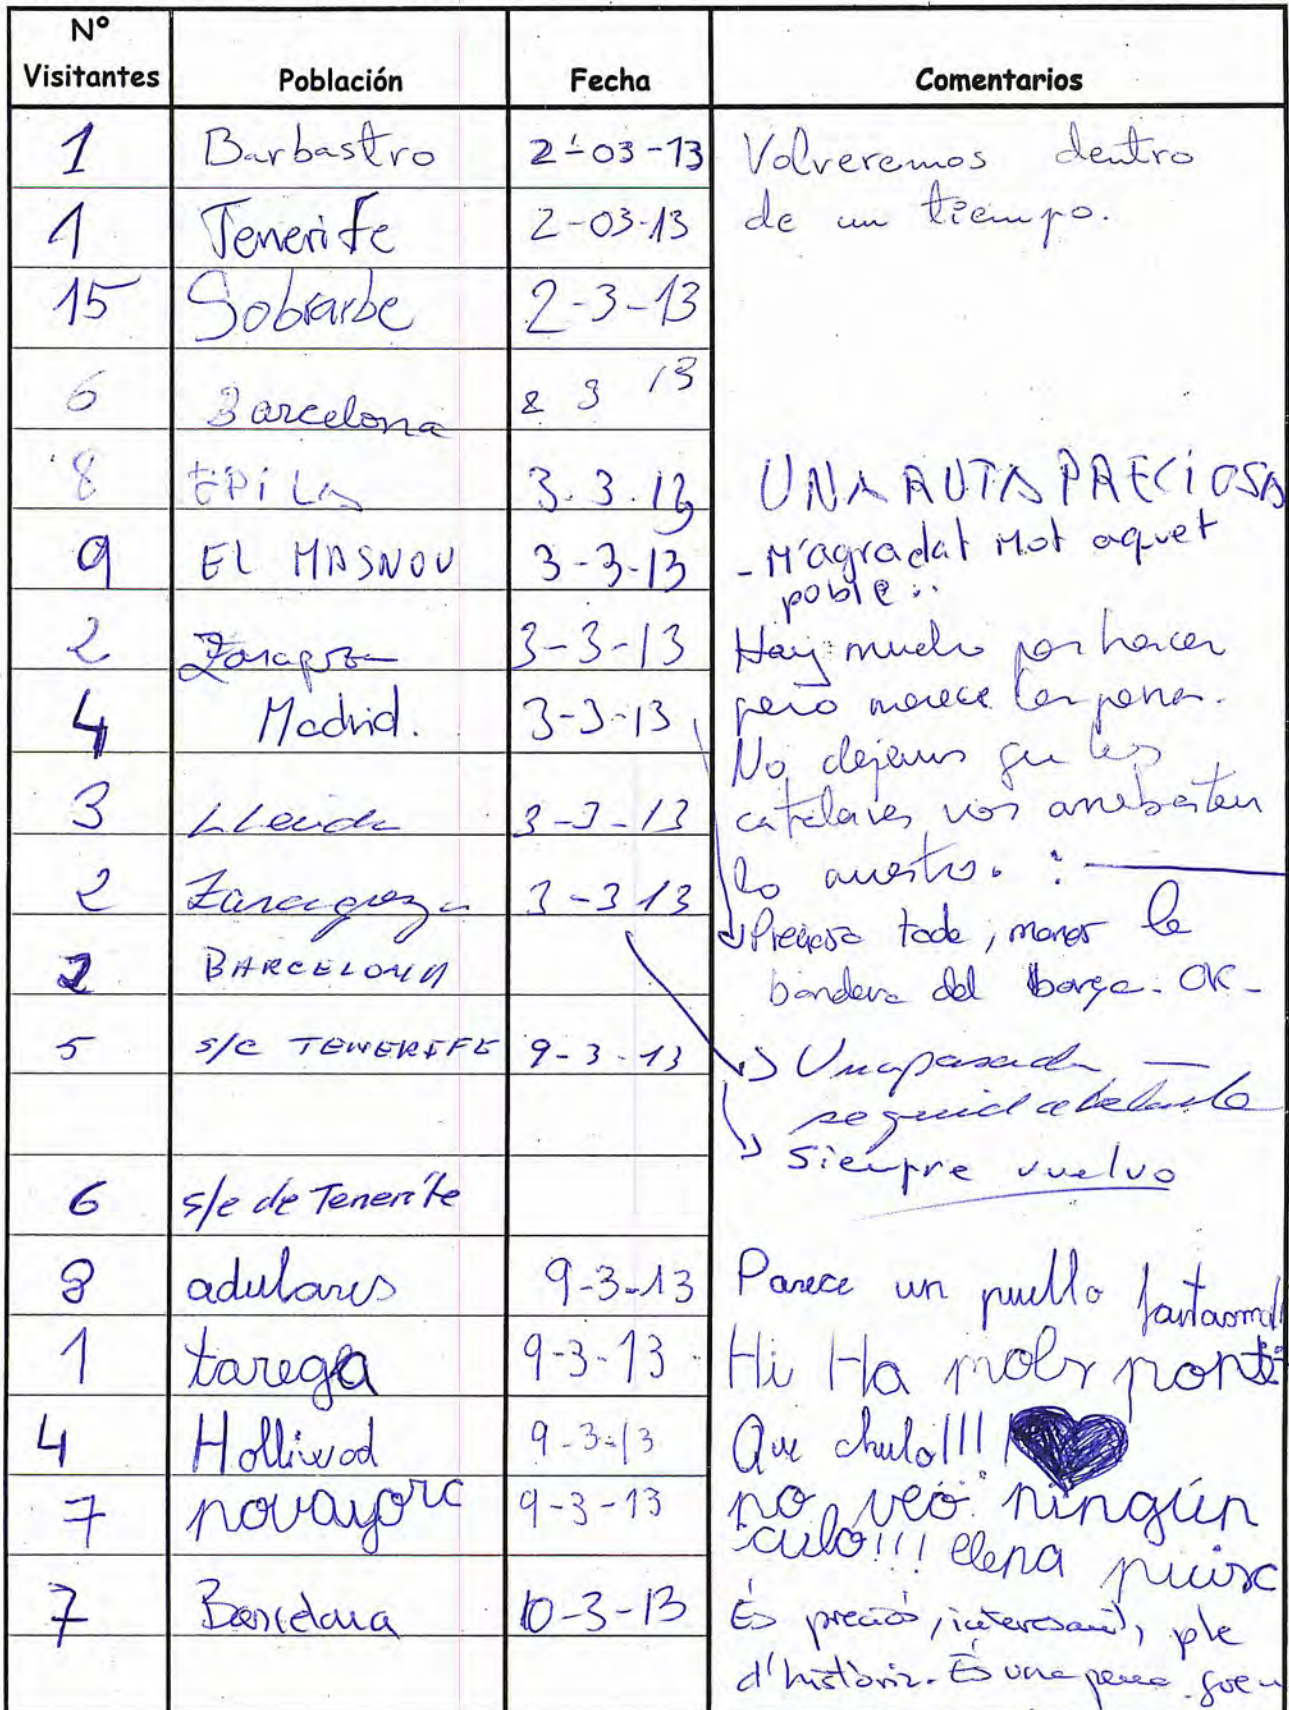 Nº
Visitantes Población Fecha Comentarios
1 Barbastro 2-03-13 Volveremos dentro
1 Tenerife 2-03-13 de un tiempo.
15 Sobrarbe 2-3-13
6 Barcelona 2 3 13
8 EPiLa 3.3.13 UNA RUTA PRECiOSA
9 EL MASNOU 3-3-13 - M'agradat Mot aquet
poble :.
2 Zaragoza 3-3-13 Hay mucho por hacer
4 Madrid. 3-3-13 pero merece la pena.
No dejemos que los
3 LLeida 3-3-13 catalanes nos arrebaten
lo nuestro. :
2 Zaragoza 3-3 13 Preciosa todo, menos la
2 BARCELONA bandera del barça. OK-
5 s/c TENERIFE 9-3-13 Una pasada
seguid adelante
Siempre vuelvo
6 s/c de Tenerife
8 adulares 9-3-13 Parece un puello fantasma!!
1 tarega 9-3-13 Hi Ha mols
4 Holliwod 9-3-13 Que chulo!!!
7 novayorc 9-3-13 no veo ningún
culo!!! elena
7 Barcelona 10-3-13 És preciós, interesant, ple
d'història. És una pena que